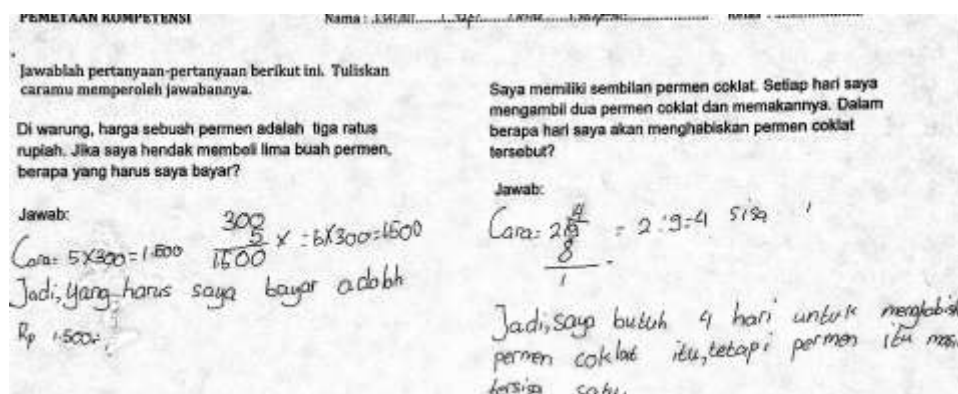 PEMETAAN KOMPETENSI
Nama :
Jawablah pertanyaan-pertanyaan berikut ini. Tuliskan
caramu memperoleh jawabannya.
Di warung, harga sebuah permen adalah tiga ratus
rupiah. Jika saya hendak membeli lima buah permen,
berapa yang harus saya bayar?
Jawab:
Cara: 5X300=1.500
300
5 X
1500
=5X300=1500
Jadi, yang harus saya bayar adalah
Rp 1.500,-
Saya memiliki sembilan permen coklat. Setiap hari saya
mengambil dua permen coklat dan memakannya. Dalam
berapa hari saya akan menghabiskan permen coklat
tersebut?
Jawab:
4
Cara: 2 9 = 2:9=4 sisa 1
8
1
Jadi, saya butuh 4 hari untuk menghabis
permen coklat itu, tetapi permen itu mas
tersisa satu.